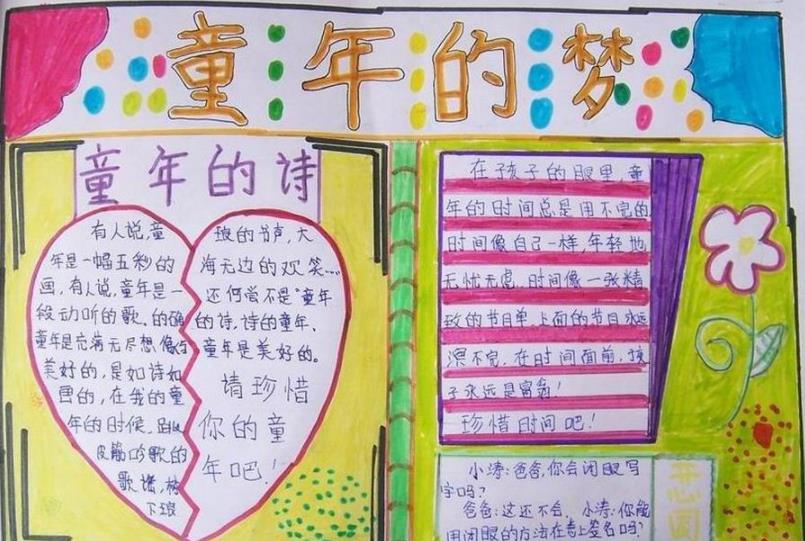 童年的梦
童年的诗
有人说,童
年是一幅五彩的
画,有人说,童年是一
段动听的歌。的确
童年是充满无尽想像与
美好的,是如诗如
画的,在我的童
年的时候,跳
皮筋吟歌的
歌谣,树
下琅
琅的书声,大
海无边的欢笑……
还何尝不是"童年
的诗,诗的童年、
童年是美好的。
请珍惜
你的童
年吧!
在孩子的眼里,童
年的时间总是用不完的
时间像自己一样,年轻地
无忧无虑,时间像一张精
致的节目单,上面的节目永远
演不完,在时间面前,孩
子永远是富翁!
珍惜时间吧!
小涛:爸爸,你会闭眼写
字吗?
爸爸:这还不会,小涛:你能
用闭眼的方法在书上签名吗?
开心园